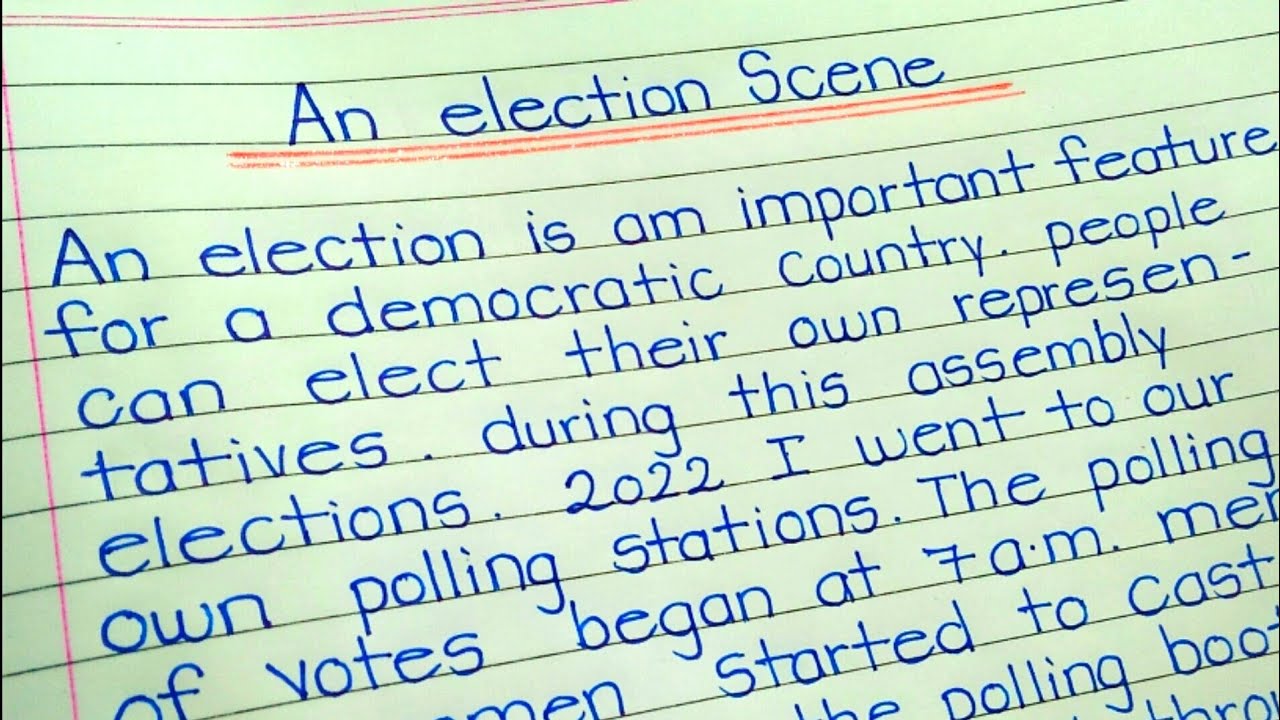 An election Scene
An election is am important feature
for a democratic country. people
can elect their own represen-
tatives. during this assembly
elections. 2022 I went to our
own polling stations. The polling
of votes began at 7 a.m. men
started to cast
the polling